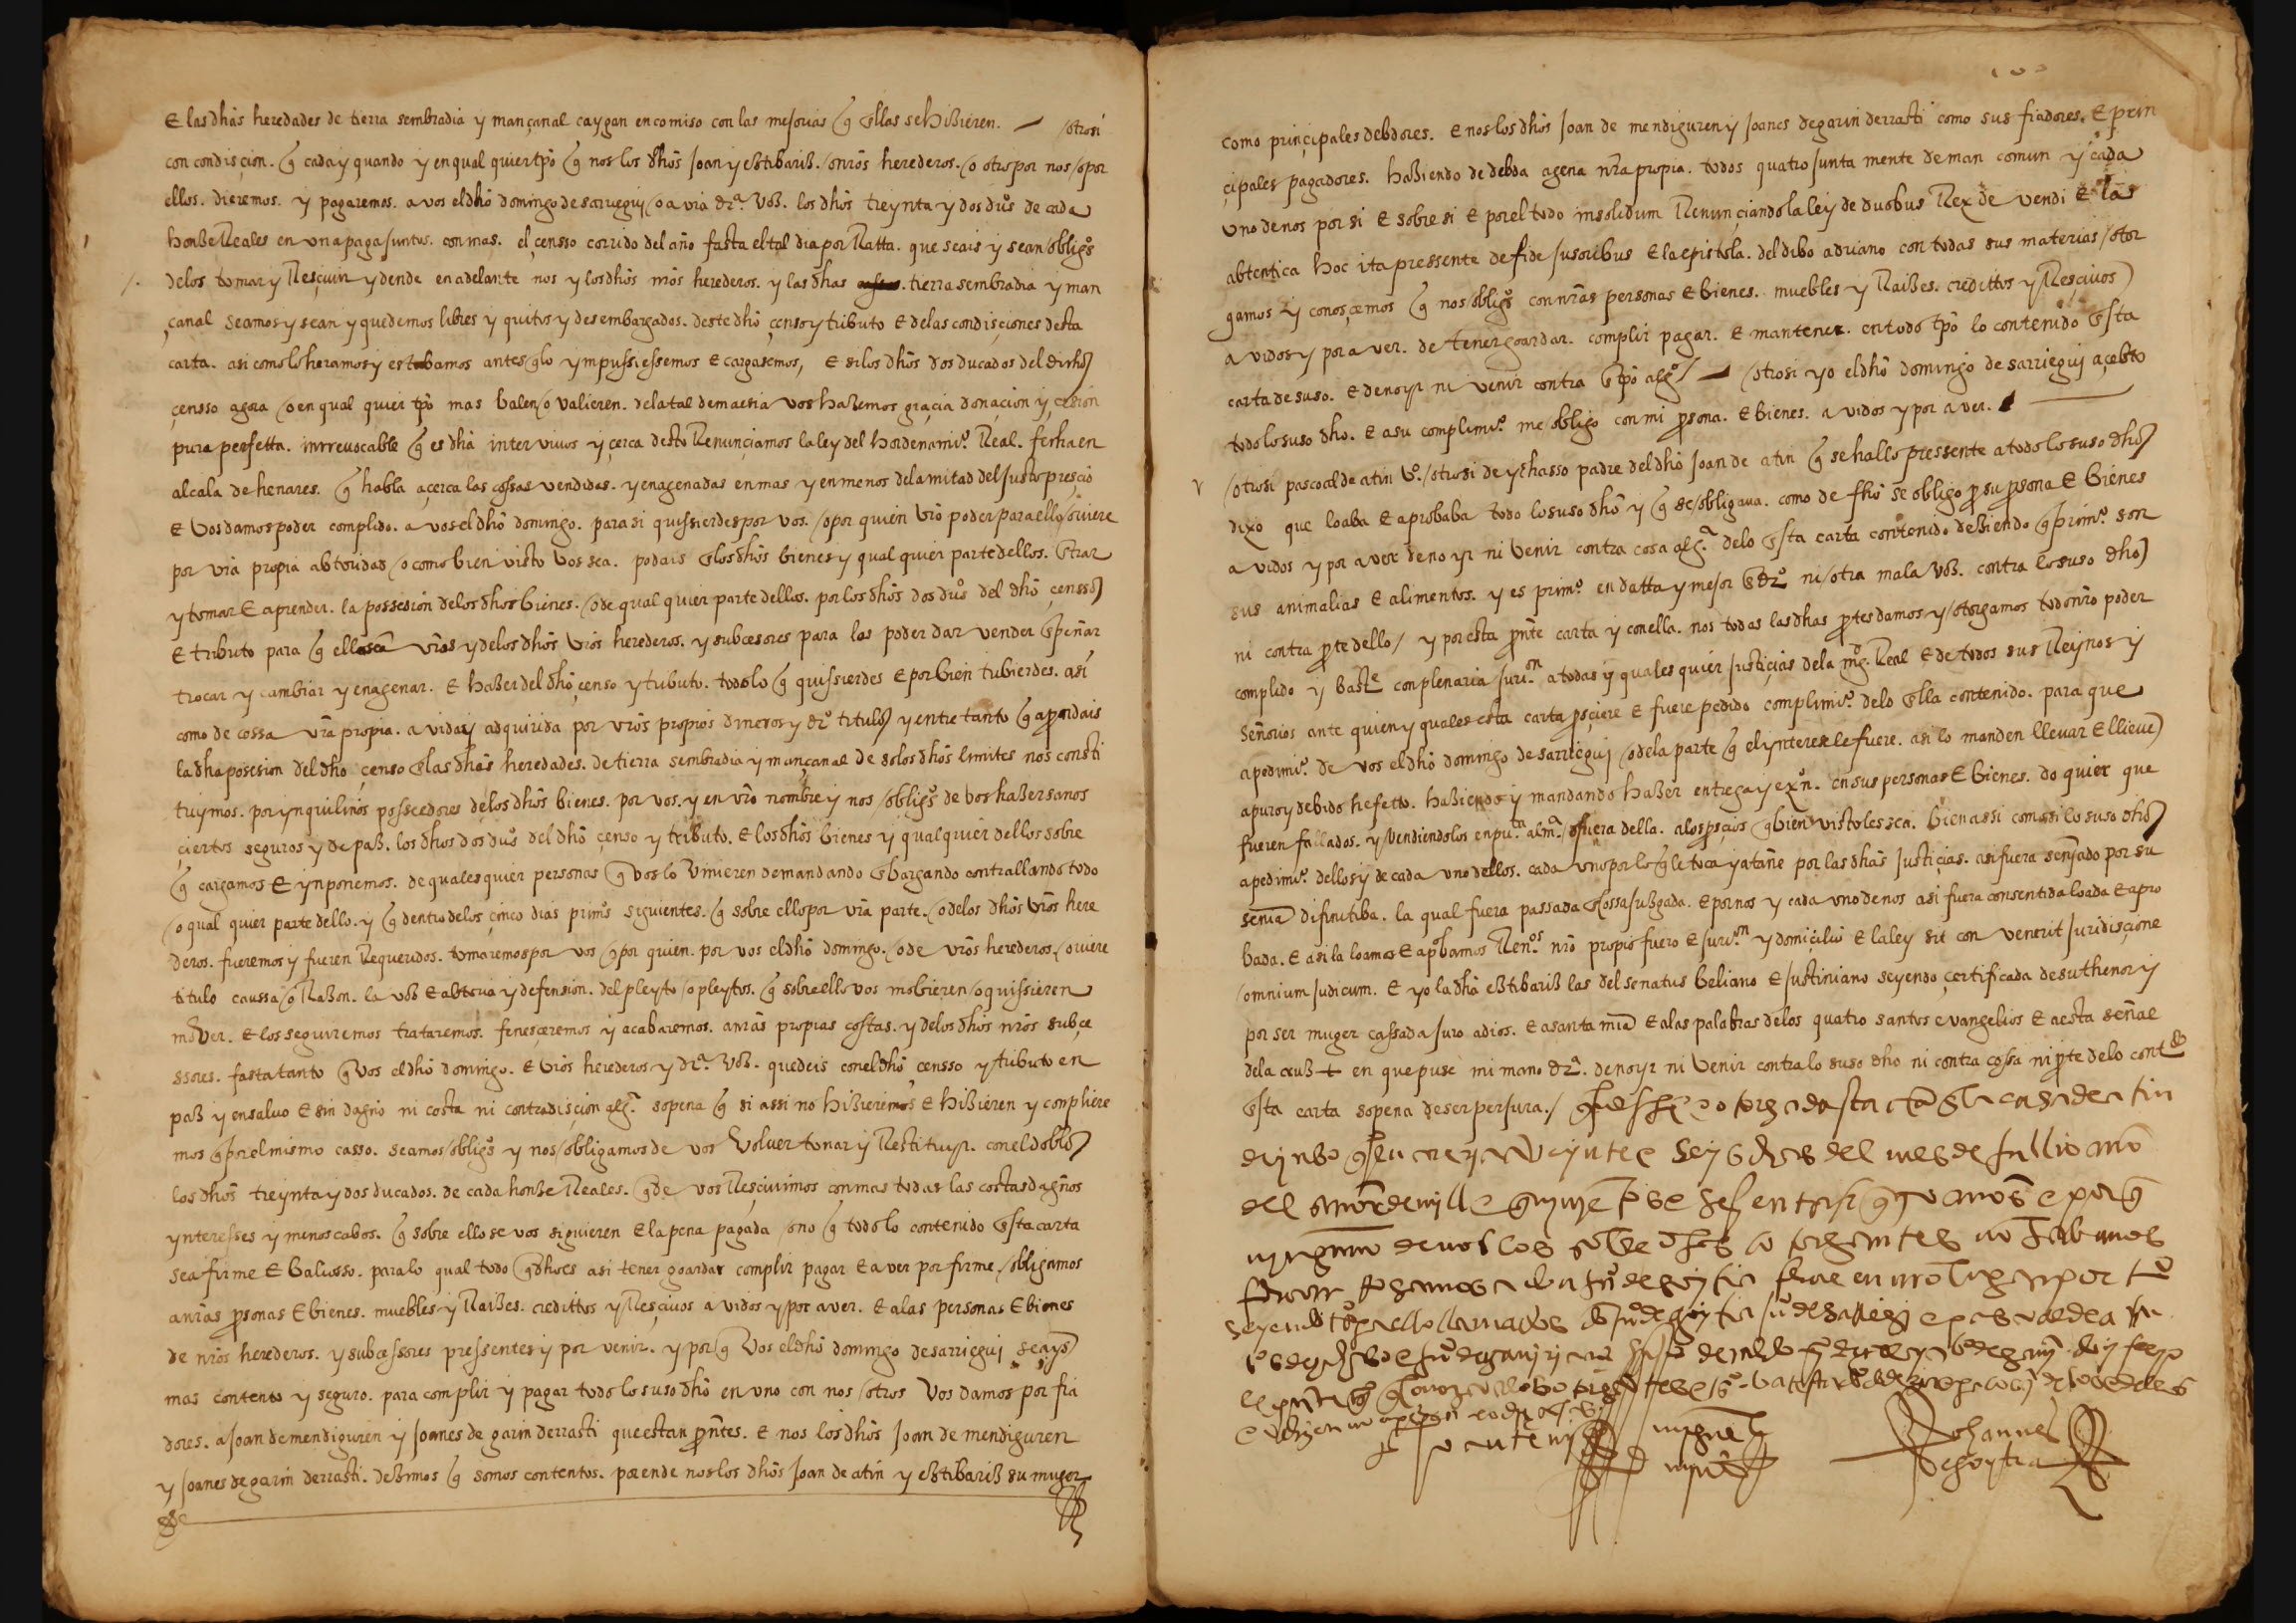 E las dhas heredades de tierra sembradia y mançanal caygan en comiso con las mejorias q̃ ellas se hizieren. — /otrosi
con condiscion. q̃ cada y quando y en qual quier tpo q̃ nos los dhos Joan y estibariz. /o nr̃os herederos. /o otro por nos /o por
ellos. dieremos. y pagaremos. a vos el dho domingo de sarriegui /o a vr̃a dra. voz. los dhos treynta y dos dus de cada
honze Reales en vna paga Juntos. con mas. el çensso corrido del año fasta el tal dia por Ratta. que seais y sean /obligos
de los tomar y Resçiuir y dende en adelante nos y los dhos nr̃os herederos. y las dhas tierra sembradia y man
çanal seamos y sean y quedemos libres y quitos y desembargados. deste dho çenso y tributo E de las condisçiones desta
carta. asi como lo heramos y estabamos antes q̃ lo ympussiessemos E cargasemos, E si los dhos dos ducados del dicho
çensso agora /o en qual quier tpo mas balen /o valieren. de la tal demassia vos hazemos graçia donaçion y çesion
pura perfetta. inrrevocable q̃ es dha inter vivos y çerca desto Renunçiamos la ley del hordenamio. Real. fecha en
alcala de henares. q̃ habla açerca las cossas vendidas. y enagenadas en mas y en menos de la mitad del Justo presçio
E vos damos poder complido. a vos el dho domingo. para si quissierdes por vos. /o por quien vr̃o poder para ello /oviere
por vr̃a propia abtoridad /o como bien visto vos sea. podais en los dhos bienes y qual quier parte dellos. entrar
y tomar E aprender. la possesion de los dhos bienes. /o de qual quier parte dellos. por los dhos dos dus del dho çensso
E tributo para q̃ ellos sean vr̃os y de los dhos vr̃os herederos. y subcesores para los poder dar vender enpeñar
trocar y cambiar y enagenar. E hazer del dho çenso y tributo. todo lo q̃ quissierdes E por bien tubierdes. asi
como de cossa vr̃a propia. avida y adquirida por vr̃os propios dineros y dro titulo y entre tanto q̃ aprendais
la dha posesion del dho çenso en las dhas heredades. de tierra sembradia y mançanal de so los dhos limites nos consti
tuymos. por ynquilinos posseedores de los dhos bienes. por vos. y en vr̃o nombre y nos /obligos de vos hazer sanos
çiertos seguros y de paz. los dhos dos dus del dho çenso y tributo. E los dhos bienes y qual quier dellos sobre
q̃ cargamos E ynponemos. de quales quier personas q̃ vos lo vinieren demandando enbargando contrallando todo
/o qual quier parte dello. y q̃ dentro de los çinco dias primos siguientes. q̃ sobre ello por vr̃a parte. /o de los dhos vr̃os here
deros. fueremos y fueren Requeridos. tomaremos por vos /o por quien. por vos el dho domingo. /o de vr̃os herederos. /oviere
titulo caussa /o Razon. la voz E abtoria y defension. del pleyto /o pleytos. q̃ sobre ello vos mobieren /o quissieren
mover. E los seguiremos trataremos. fenesçeremos y acabaremos. a nr̃as propias costas. y de los dhos nr̃os subçe
ssores. fasta tanto q̃ vos el dho domingo. E vr̃os herederos y dra. voz. quedeis con el dho censso y tributo en
paz y en salvo E sin dagño ni costa ni contradisçion alga. so pena q̃ si assi no hizieremos E hizieren y compliere
mos q̃ por el mismo casso. seamos /obligos y nos /obligamos de vos volver tornar y Restituyr. con el doblo
los dhos treynta y dos ducados. de cada honze Reales. q̃ de vos Resçiuimos con mas todas las costas dagños
yntereses y menoscabos. q̃ sobre ello se vos siguieren E la pena pagada /o no q̃ todo lo contenido en esta carta
sea firme E baliosso. para lo qual todo q̃ dho es asi tener goardar complir pagar E aver por firme /obligamos
a nr̃as personas E bienes. muebles y Raizes. credittos y Resçivos avidos y por aver. E a las personas E bienes
de nr̃os herederos. y subcessores pressentes y por venir. y por q̃ vos el dho domingo de sarriegui seays
mas contento y seguro. para complir y pagar todo lo suso dho en vno con nos /otros vos damos por fia
dores. a Joan de mendiguren y Joanes de garin derrasti que estan pñtes. E nos los dhos Joan de mendiguren
y Joanes de garin derrasti. dezimos q̃ somos contentos. por ende nos los dhos Joan de atin y estibariz su muger
como prinçipales debdores. E nos los dhos Joan de mendiguren y Joanes de garin derrasti como sus fiadores. E prin
çipales pagadores. haziendo de debda agena nr̃a propia. todos quatro Junta mente de man comun y cada
vno de nos por si E sobre si E por el todo insolidum Renunçiando la ley de duobus Rex de vendi E la
abtentica hoc ita pressente de fide Jusoribus E la epistola. del dibo adriano con todas sus materias /otor
gamos y conosçemos q̃ nos /obligos con nr̃as personas E bienes. muebles y Raizes. credittos y Resçivos
avidos y por aver. de tener goardar. complir pagar. E mantener. en todo tpo lo contenido en esta
carta de suso. E de no yr ni venir contra en tpo algo / — /otrosi yo el dho domingo de sarriegui açebto
todo lo suso dho. E a su complimio. me /obligo con mi persona. E bienes. avidos y por aver.
/otrosi pascoal de atin vo. /otrosi de ychasso padre del dho Joan de atin q̃ se hallo pressente a todo lo suso dho
dixo que loaba E aprobaba todo lo suso dho y q̃ se /obligava. como de fho se obligo por su persona E bienes
avidos y por aver de no yr ni venir contra cosa alga. de lo en esta carta contenido deziendo q̃ primo. son
sus animalias E alimentos. y es primo. en datta y mejor en dro ni /otra mala voz. contra lo suso dho
ni contra parte dello / y por esta pñte carta y con ella. nos todas las dhas partes damos y /otorgamos todo nr̃o poder
complido y baste con plenaria Juron. a todas y quales quier Justiçias de la mag. Real E de todos sus Reynos y
Señorios ante quien y quales esta carta paresçiere E fuere pedido complimio. de lo en ella contenido. para que
a pedimio. de vos el dho domingo de sarriegui /o de la parte q̃ el ynterese le fuere. asi lo manden llevar E llieve
a puro y debido hefetto. haziendo y mandando hazer entrega y exon. en sus personas E bienes. do quier que
fueren fallados. y vendiendolos en puca. alma. /o fuera della. a los presçios q̃ bien visto les sea. bien assi como si lo suso dho
a pedimio. dellos y de cada vno dellos. cada vno por lo q̃ le toca y atañe por las dhas Justiçias. asi fuera senjado por su
senia difinitiba. la qual fuera passada en cossa Juzgada. E por nos y cada vno de nos asi fuera consentida loada E apro
bada. E asi la loamos E aprobamos Renos. nr̃o propio fuero E Juron y domiçilio E la ley sit con venerit Juridisçione
/omnium Judicum. E yo la dha estibariz las del senatus beliano E Justiniano seyendo çertificada de su thenor y
por ser muger cassada Juro a dios. E a santa mia E a las palabras de los quatro santos evangelios E a esta señal
de la cruz + en que puse mi mano dra. de no yr ni venir contra lo suso dho ni contra cosa ni parte de lo contdo
en esta carta so pena de ser perjura. / q̃ fue fha E otorgada esta ctã en la casa de atin
veynte seys dias del mes de Jullio año
del señor de mill E quinientos E sesenta E años E por q̃
ninguno de nos los sobre dhos otorgantes no sabemos
firmar Rogamos a de goytia firme en nr̃o lugar por to
seyendo tos pa ello llamados
Johannes
de goytia